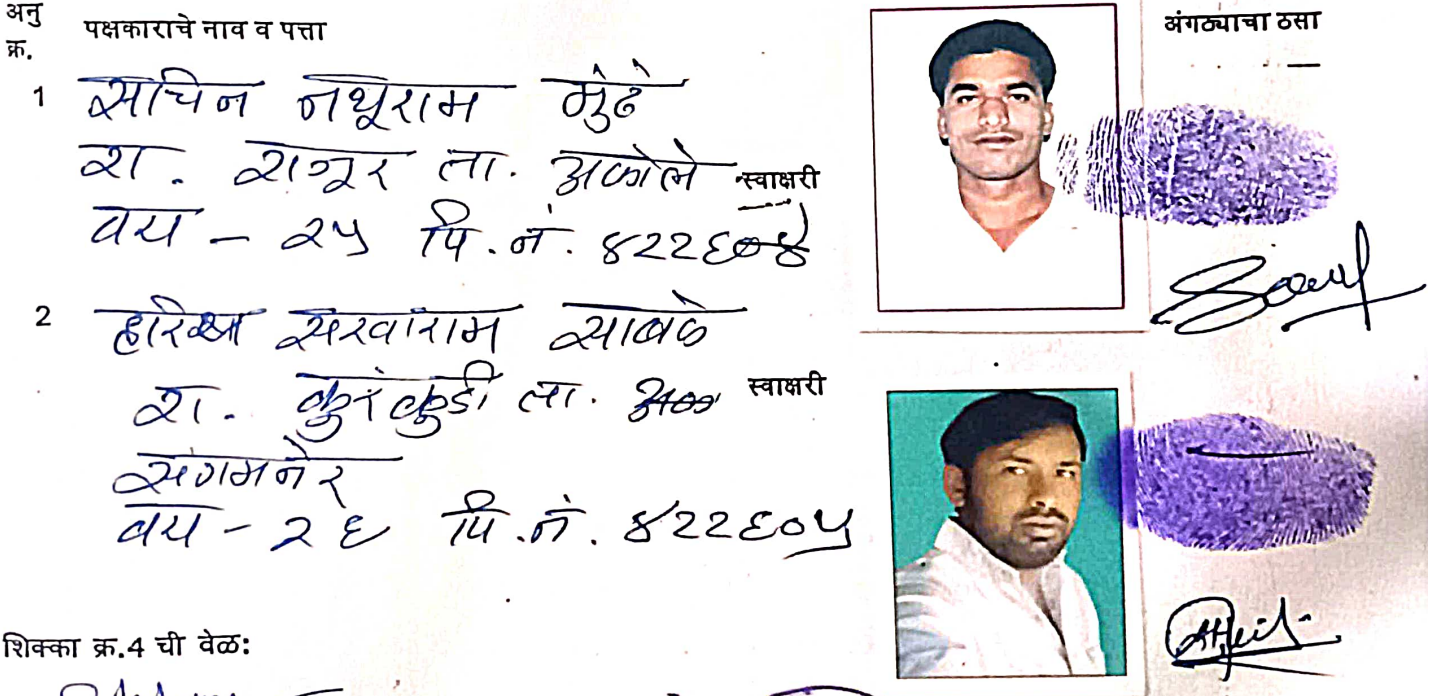 अनु क्र. पक्षकाराचे नाव व पत्ता अंगठ्याचा ठसा
1 सचिन नथूराम मुंढे
रा. राजूर ता. अकोले स्वाक्षरी
वय - २५ पि.नं. ४२२६०४
2 सखाराम साबळे
रा. कुरकुंडी ता. स्वाक्षरी
संगमनेर
वय - २६ पि.नं. ४२२६०५
शिक्का क्र.4 ची वेळ: